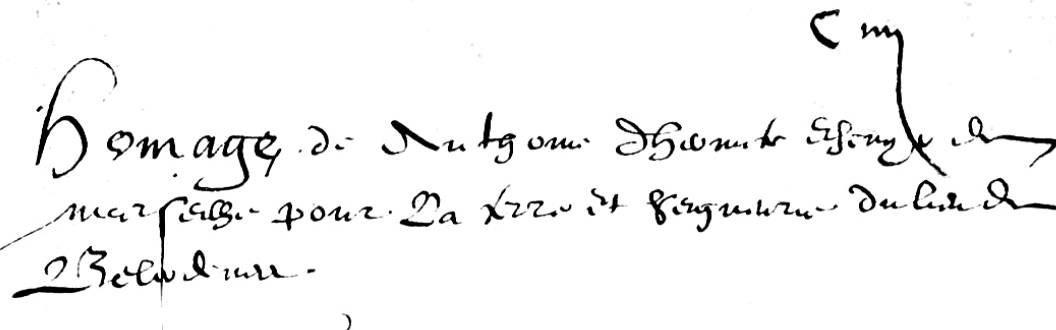 C iiij
Homage de Anthoine d'heomite escuyer de
marseille pour la terre et seigneurie du lieu de
Belvedeire.